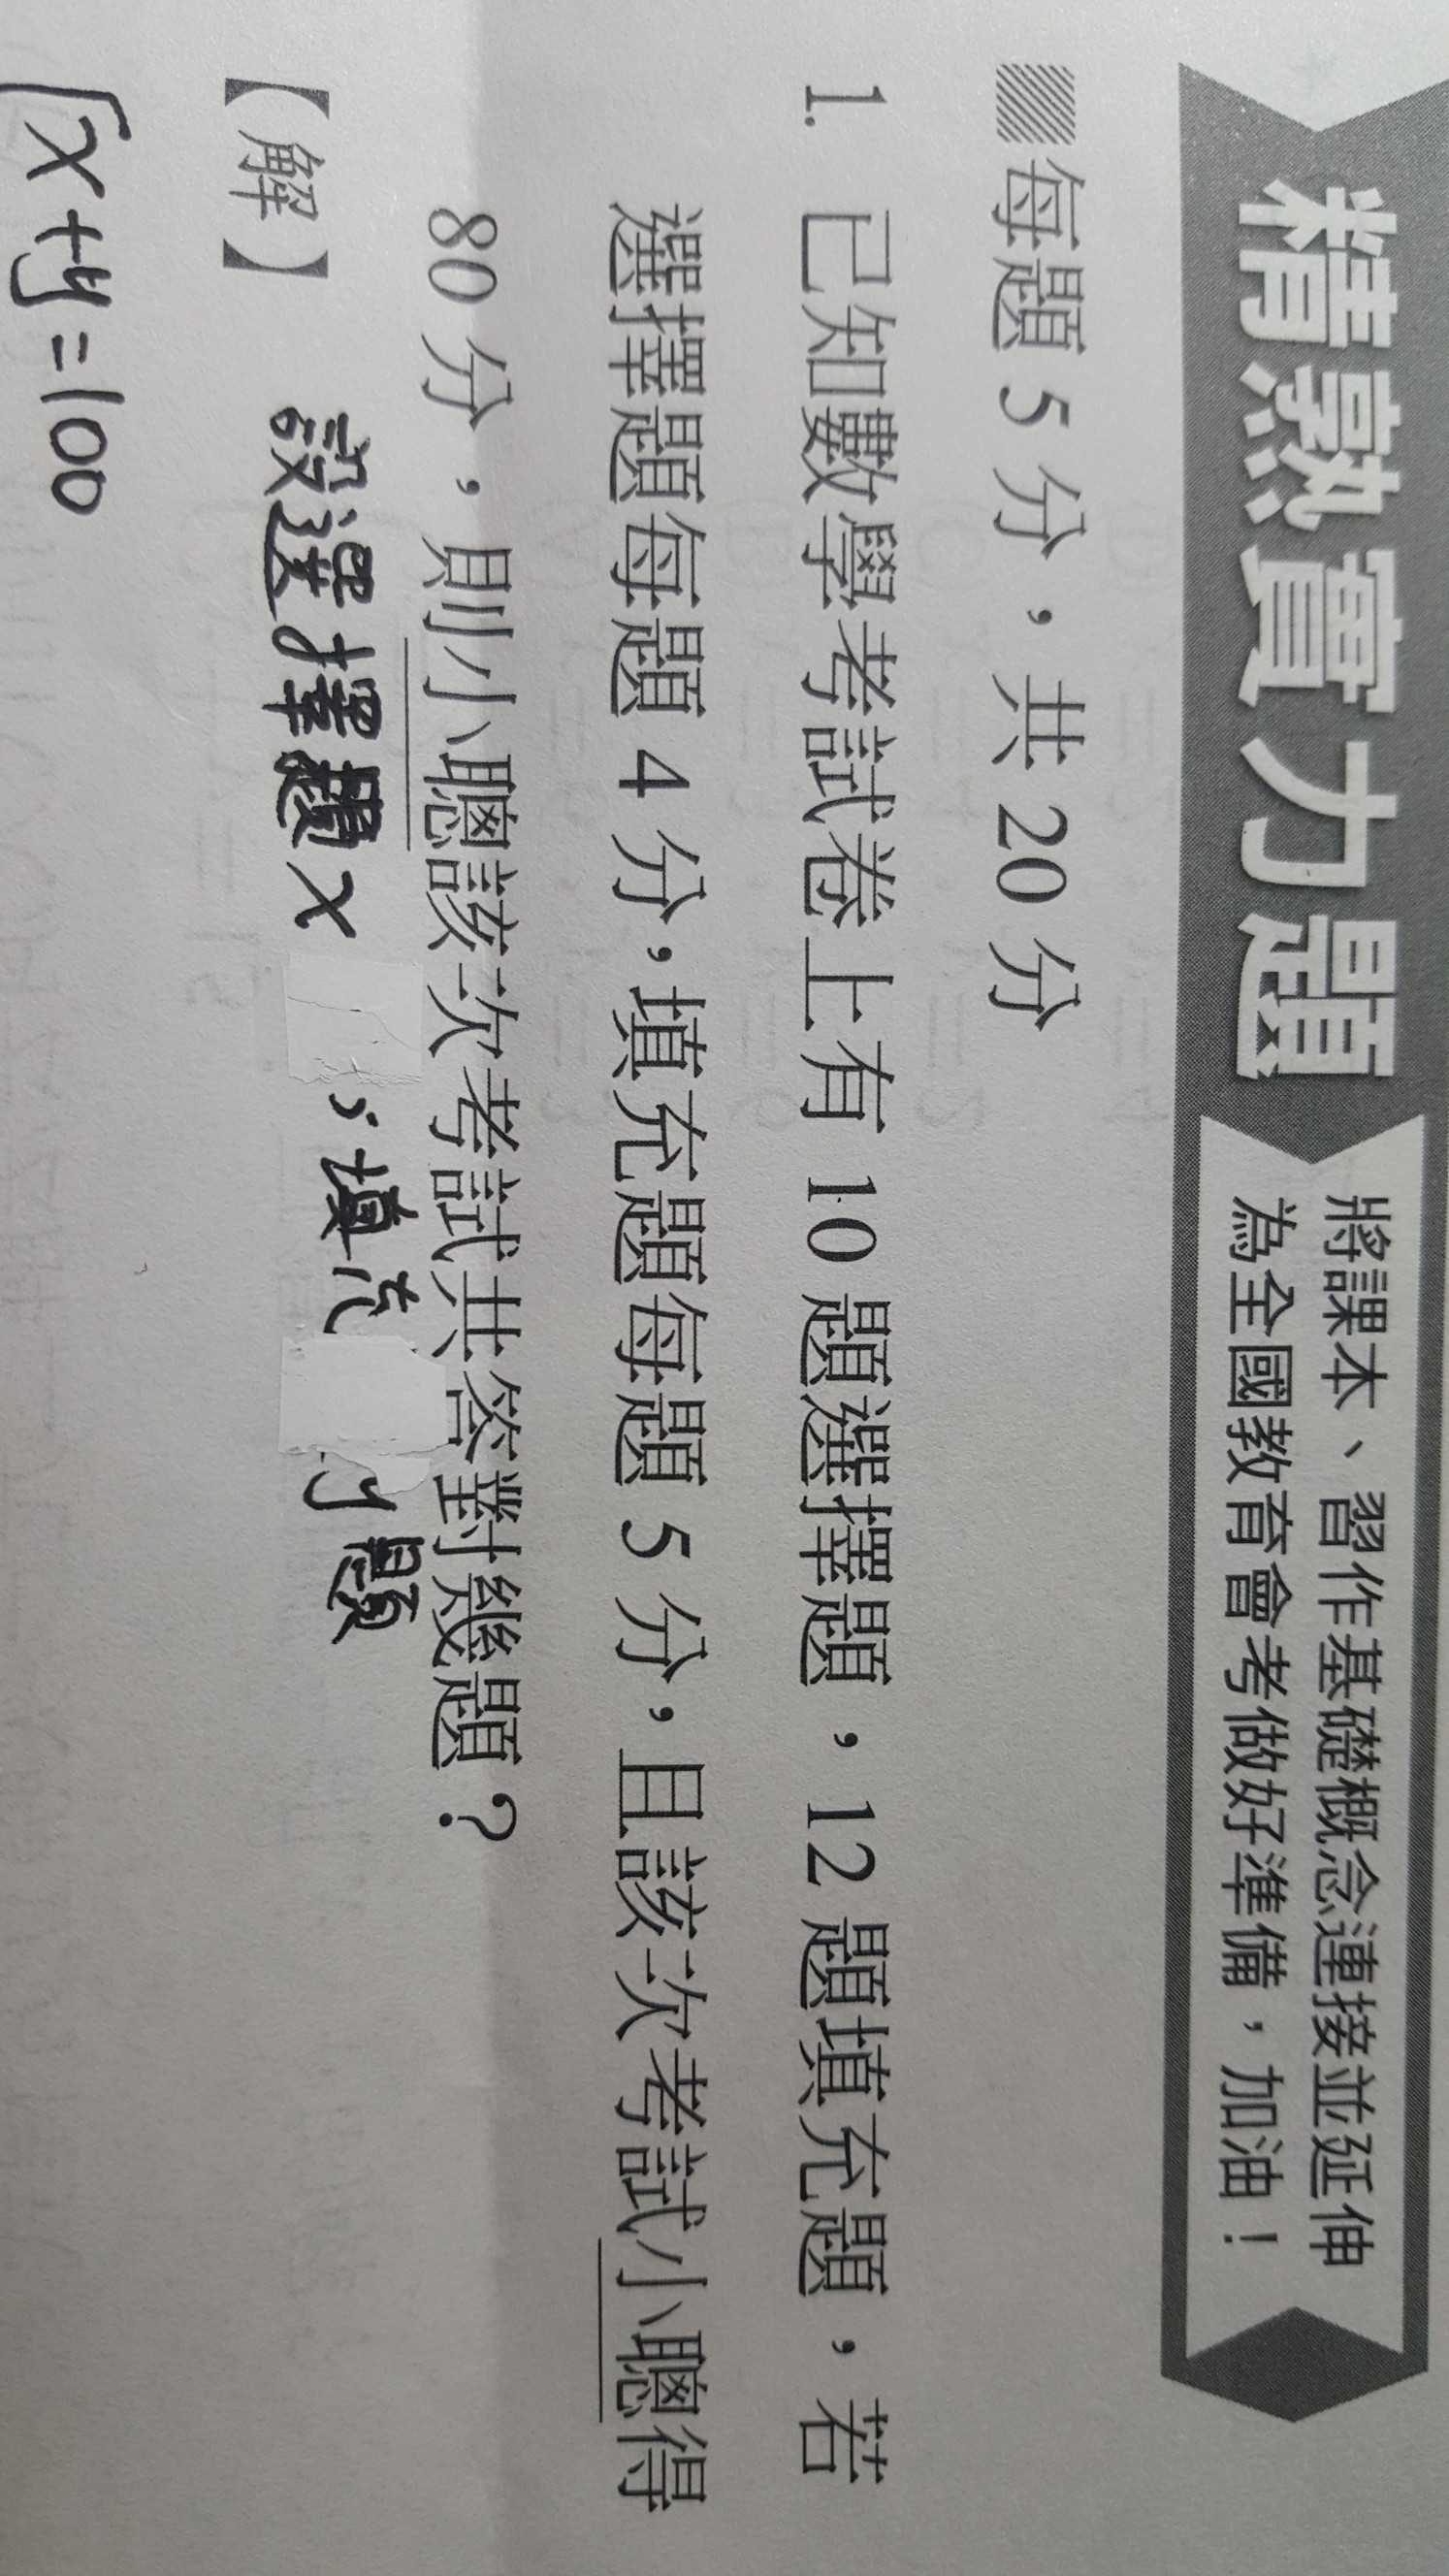 精熟實力題
將課本、習作基礎概念連接並延伸
為全國教育會考做好準備，加油！
每題 5 分，共 20 分
1. 已知數學考試卷上有 10 題選擇題，12 題填充題，若
選擇題每題 4 分，填充題每題 5 分，且該次考試小聰得
80 分，則小聰該次考試共答對幾題？
【解】 設選擇題x、填充 y題
x+y=100